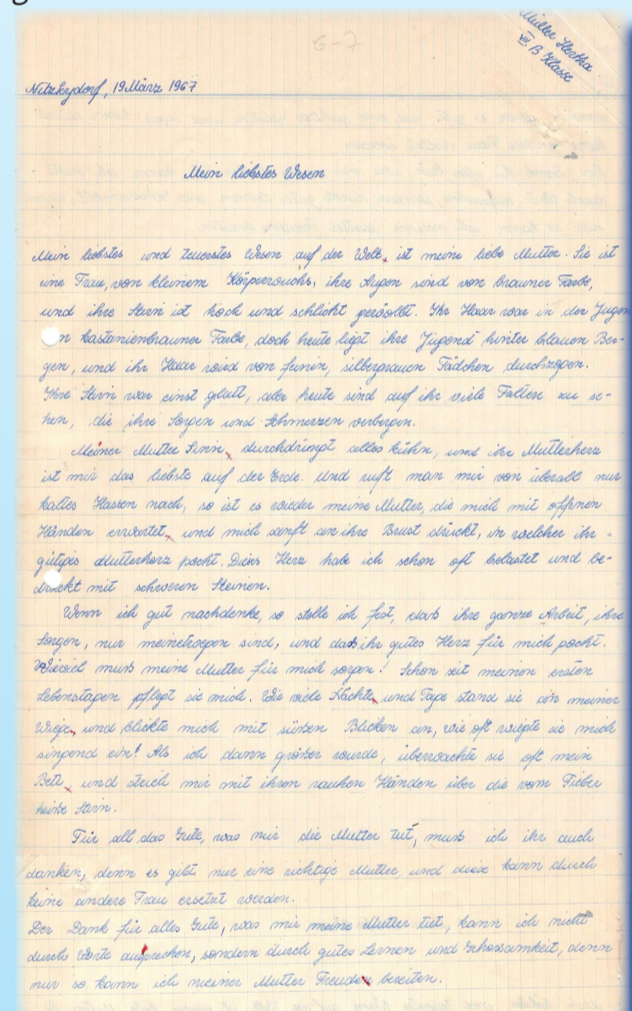 Müller Hertha
VII B Klasse
Nitzkydorf, 19 März 1967
Mein liebstes Wesen
Mein liebstes und teuerstes Wesen auf der Welt, ist meine liebe Mutter. Sie ist
eine Frau, von kleinem Körperwuchs, ihre Augen sind von brauner Farbe,
und ihre Stirn ist hoch und schlicht gewölbt. Ihr Haar war in der Jugen
n kastanienbrauner Farbe, doch heute liegt ihre Jugend hinter blauen Ber-
gen, und ihr Haar wird von feinen, silbergrauen Fädchen durchzogen.
Ihre Stirn war einst glatt, aber heute sind auf ihr viele Falten zu se-
hen, die ihre Sorgen und Schmerzen verbergen.
Meiner Mutter Sinn, durchdringt alles kühn, und ihr Mutterherz
ist mir das liebste auf der Erde. Und ruft man mir von überall nur
kaltes Hassen nach, so ist es wieder meine Mutter, die mich mit offnen
Händen erwartet, und mich sanft an ihre Brust drückt, in welcher ihr
gütiges Mutterherz pocht. Dieses Herz habe ich schon oft belastet und be-
drückt mit schweren Steinen.
Wenn ich gut nachdenke, so stelle ich fest, dass ihre ganze Arbeit, ihre
Sorgen, nur meinetwegen sind, und dass ihr gutes Herz für mich pocht.
Wieviel muss meine Mutter für mich sorgen! Schon seit meinen ersten
Lebenstagen pflegt sie mich. Wie viele Nächte, und Tage stand sie an meiner
Wiege, und blickte mich mit süßen Blicken an, wie oft wiegte sie mich
singend ein! Als ich dann größer wurde, überwachte sie oft mein
Bett, und strich mir mit ihren rauhen Händen über die vom Fieber
heiße Stirn.
Für all das Gute, was mir die Mutter tut, muss ich ihr auch
danken, denn es gibt nur eine richtige Mutter und diese kann durch
keine andere Frau ersetzt werden.
Der Dank für alles Gute, was mir meine Mutter tut, kann ich nicht
durch Worte aussprechen, sondern durch gutes Lernen und Gehorsamkeit, denn
nur so kann ich meiner Mutter Freuden bereiten.